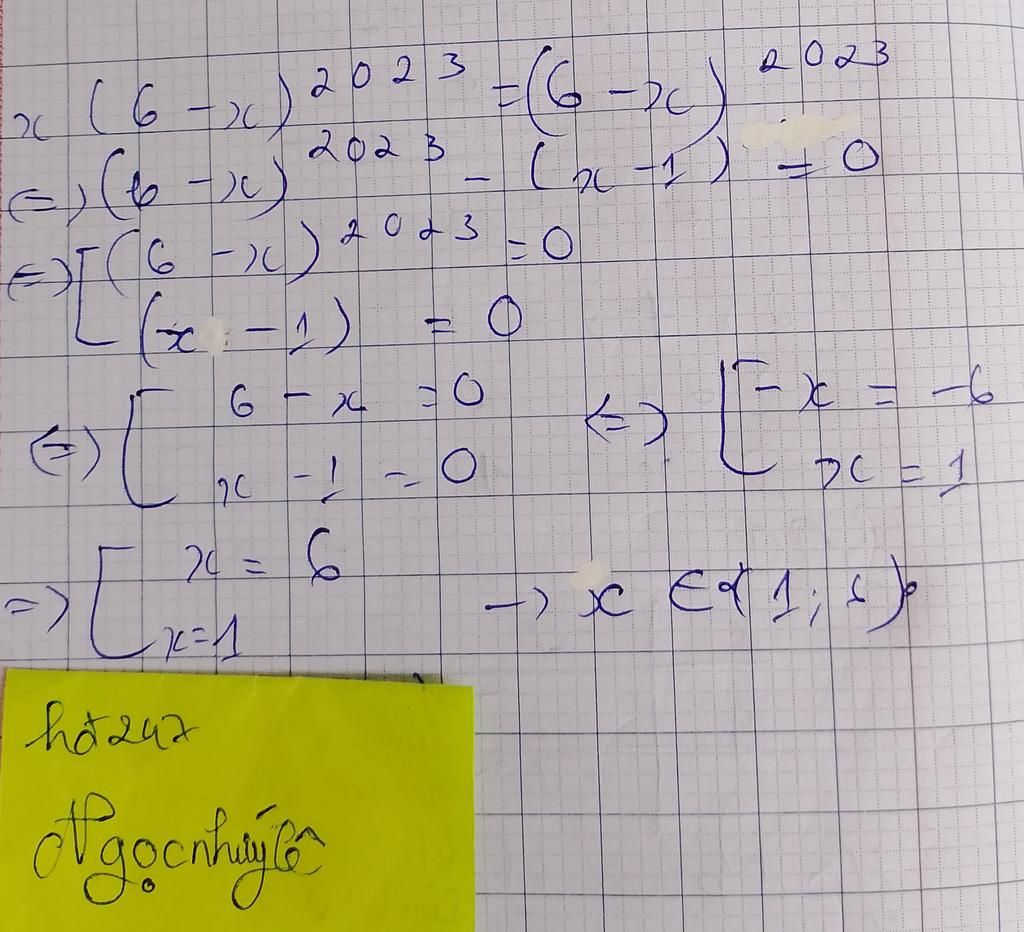 x (6 - x)^2023 = (6 - x)^2023
<=> (6 - x)^2023 - (x - 1) = 0
<=> [ (6 - x)^2023 = 0
(x - 1) = 0
<=> [ 6 - x = 0 <=> [ -x = -6
x - 1 = 0 x = 1
=> [ x = 6
x = 1 -> x ∈ {1; 6}
hđ247
Ngọcnhưýlê